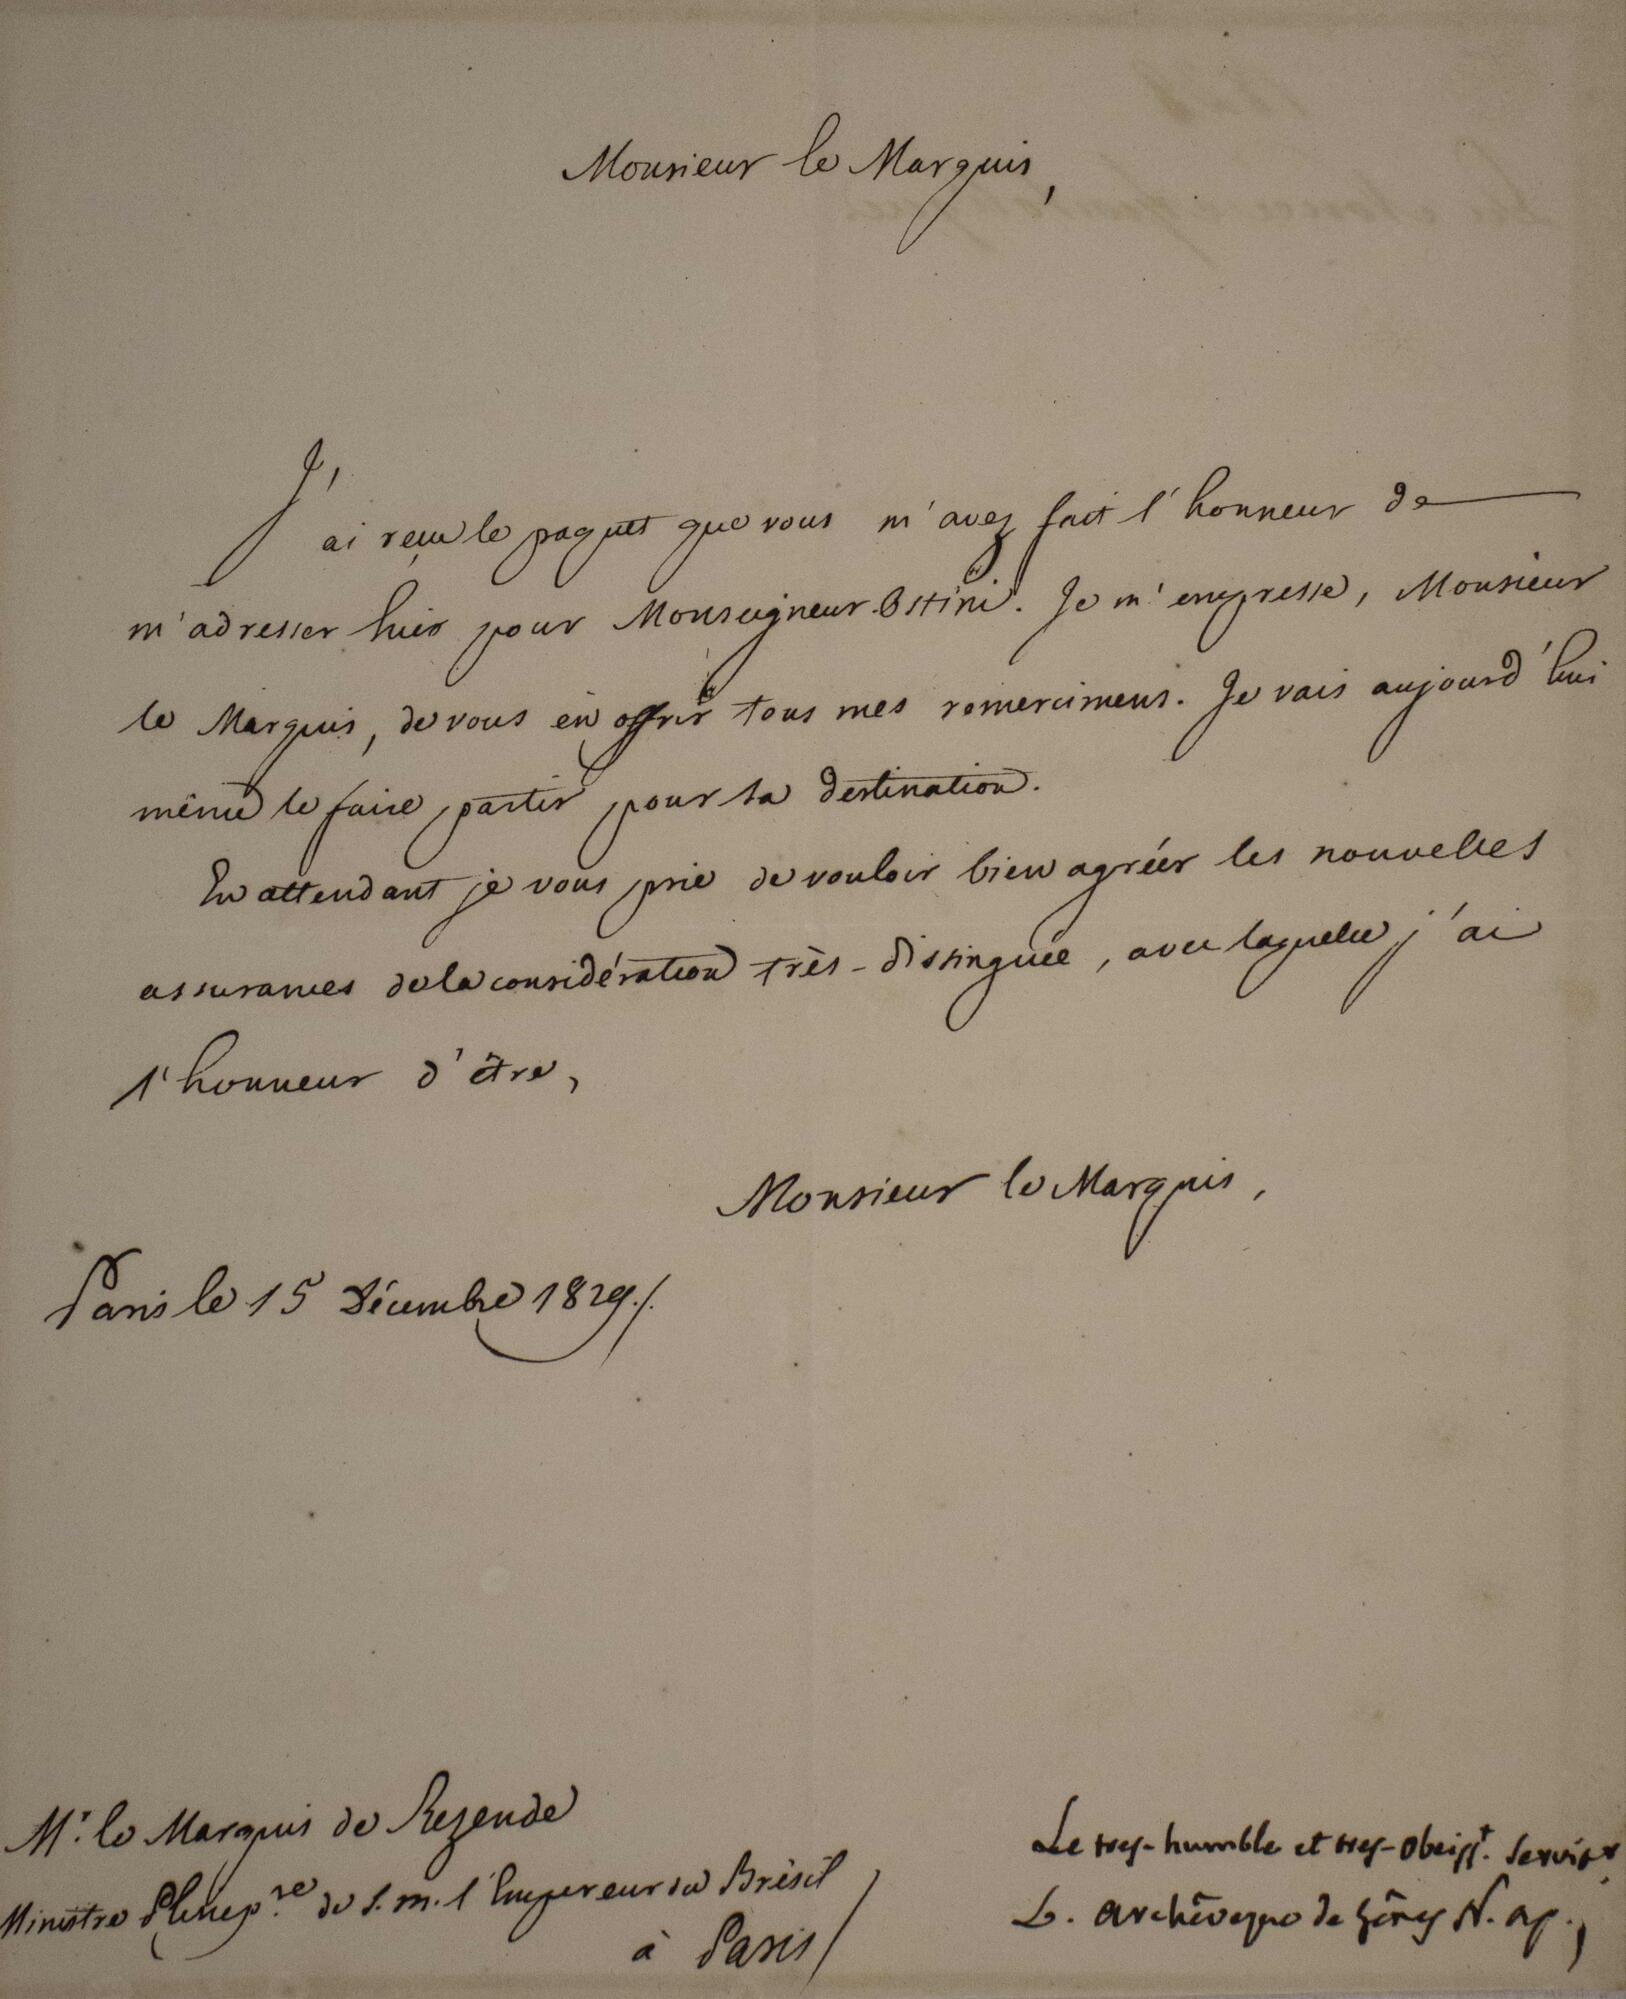 Monsieur le Marquis,
J'ai reçu le paquet que vous m'avez fait l'honneur de
m'adresser hier pour Monseigneur Ostini. Je m'empresse, Monsieur
le Marquis, de vous en offrir tous mes remercimens. Je vais aujourd'hui
même le faire partir pour sa destination.
En attendant je vous prie de vouloir bien agréér les nouvelles
assurances de la considération très-distinguée, avec laquelle j'ai
l'honneur d'être,
Monsieur le Marquis,
Paris le 15 Décembre 1829./.
Mr. le Marquis de Rezende
Ministre Plenip.re de S. M. l'Empereur du Brésil
à Paris/
Le tres-humble et tres-obeisst. Servitr
L. archêveque de Gênes N. ap.